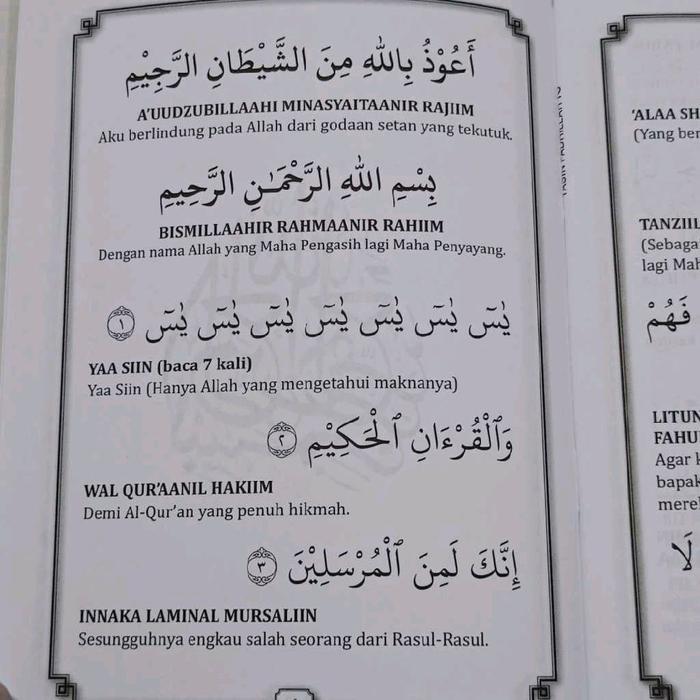 أَعُوْذُ بِاللهِ مِنَ الشَّيْطَانِ الرَّجِيْمِ
A'UUDZUBILLAAHI MINASYAITAANIR RAJIIM
Aku berlindung pada Allah dari godaan setan yang tekutuk.
بِسْمِ اللهِ الرَّحْمَـٰنِ الرَّحِيمِ
BISMILLAAHIR RAHMAANIR RAHIIM
Dengan nama Allah yang Maha Pengasih lagi Maha Penyayang.
يٰسٓ يٰسٓ يٰسٓ يٰسٓ يٰسٓ يٰسٓ يٰسٓ ١
YAA SIIN (baca 7 kali)
Yaa Siin (Hanya Allah yang mengetahui maknanya)
وَٱلْقُرْءَانِ ٱلْحَكِيْمِ ٢
WAL QUR'AANIL HAKIIM
Demi Al-Qur'an yang penuh hikmah.
إِنَّكَ لَمِنَ ٱلْمُرْسَلِيْنَ ٣
INNAKA LAMINAL MURSALIIN
Sesungguhnya engkau salah seorang dari Rasul-Rasul.
'ALAA SH
(Yang ber
TANZIIL
(Sebaga
lagi Mah
فَهُمْ
LITUN
FAHU
Agar k
bapak
mere
لَا